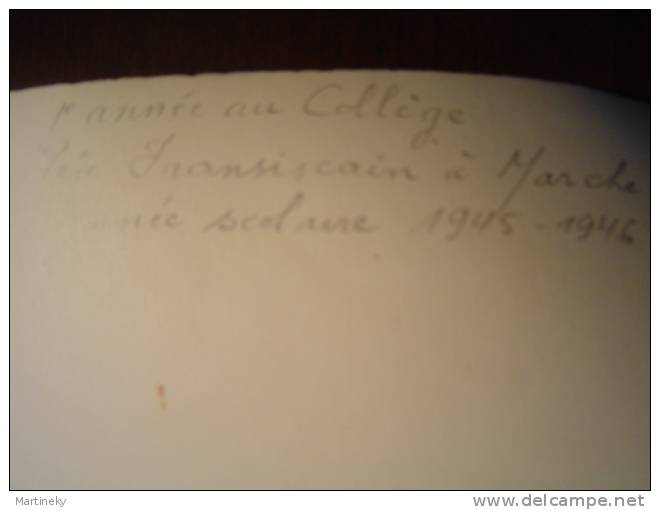 année au Collège
Fransiscain à Marche
scolaire 1945-1946
Martineky
www.delcampe.net